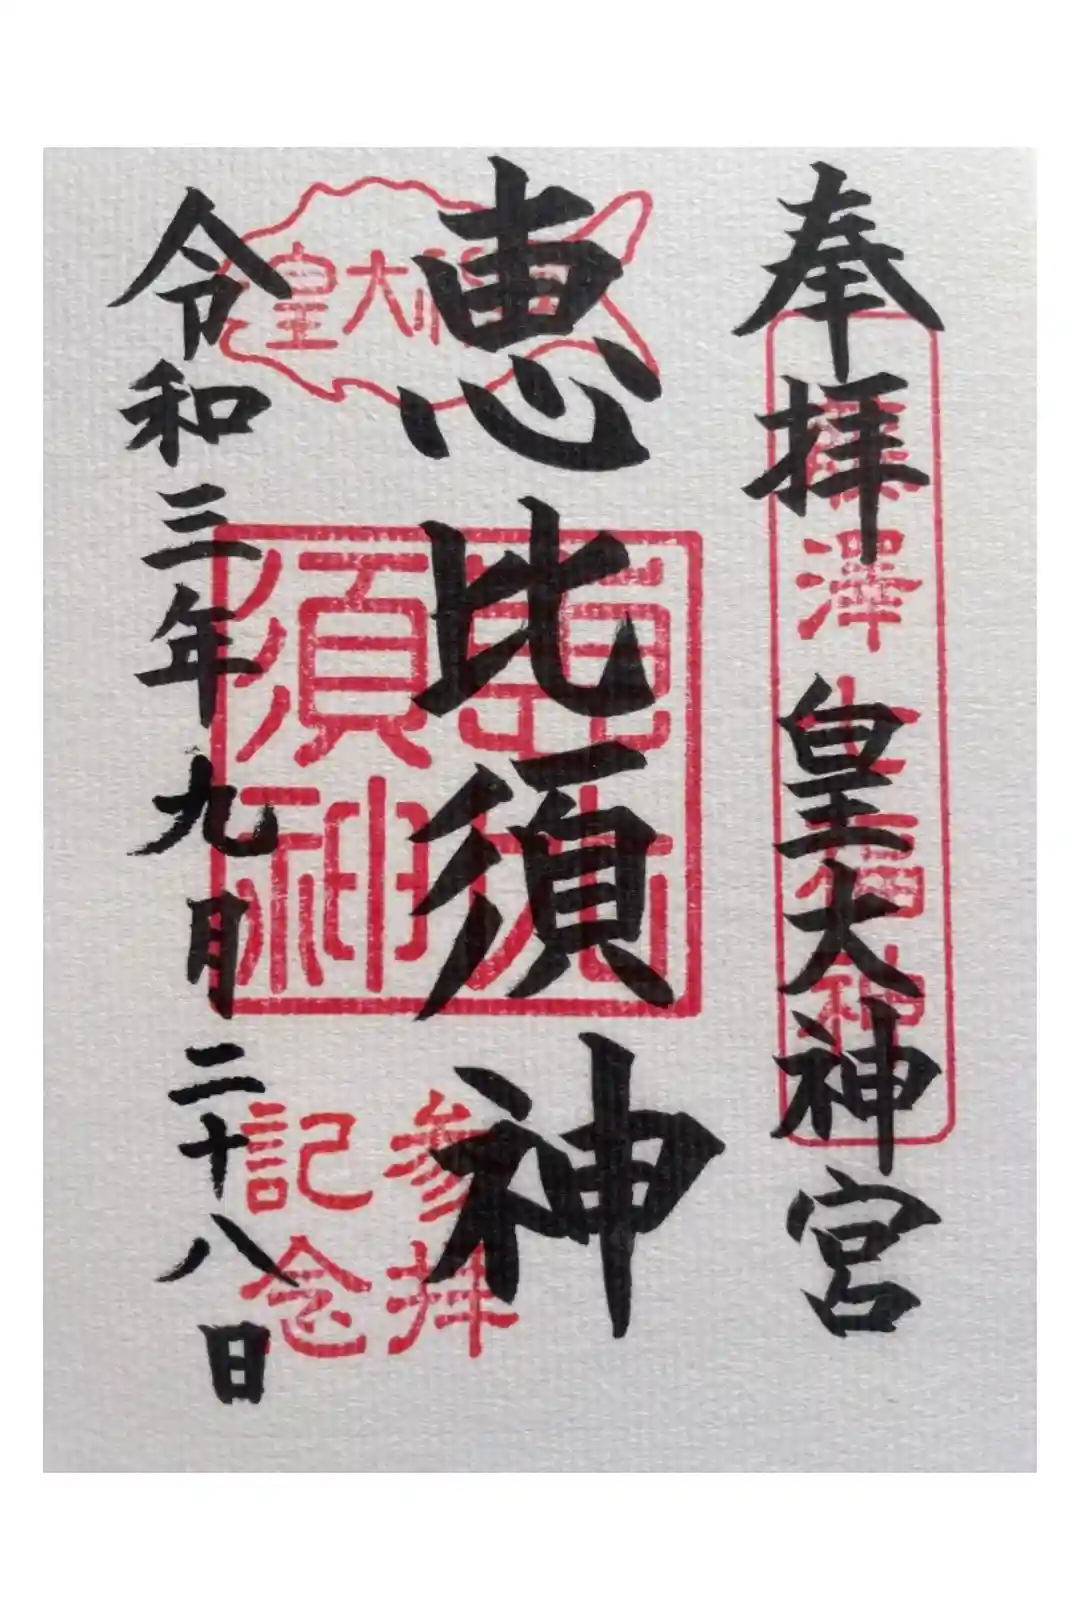 奉拝 皇大神宮
恵比須神
令和三年九月二十八日
皇大神
須
神
参拝
記念